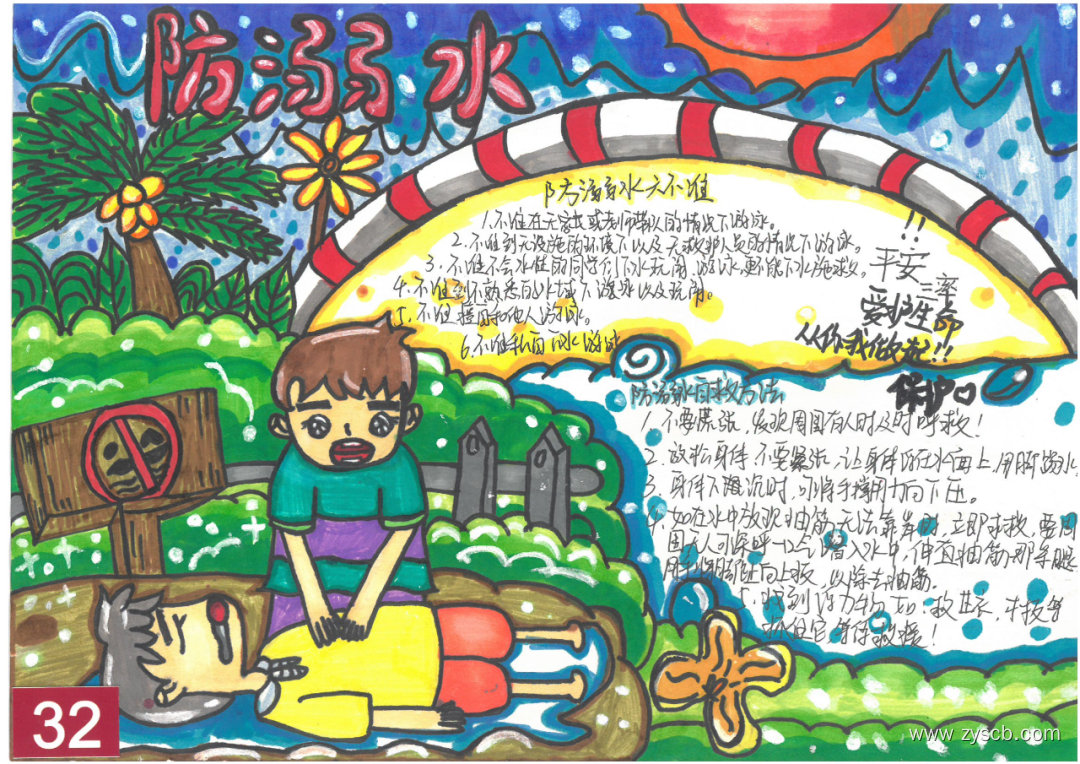 防溺水
防溺水六不准
1.不准在无家长或老师带队的情况下游泳。
2.不准到无设施的环境下以及无救护人员的情况下游泳。
3.不准不会水性的同学们下水玩闹、游泳,更不能下水施救。
4.不准到不熟悉的水域下游泳以及玩闹。
5.不准擅自和他人游泳。
6.不准私自下水游泳
!!
平安
三率
爱护生命
从你我做起!!
保护
防溺水自救方法
1.不要慌张,发现周围有人时及时呼救!
2.放松身体,不要紧张,让身体浮在水面上,用脚踢水
3.身体下沉时,可将手掌用力向下压。
4.如在水中发现抽筋无法靠岸时,立即求救,要周
围人可深呼一口气潜入水中,伸直抽筋那条腿
用手将脚趾向上扳,以除去抽筋。
5.找到浮力物,如:救生衣,木板等
抓住它等待救援!
32
www.zyscb.com